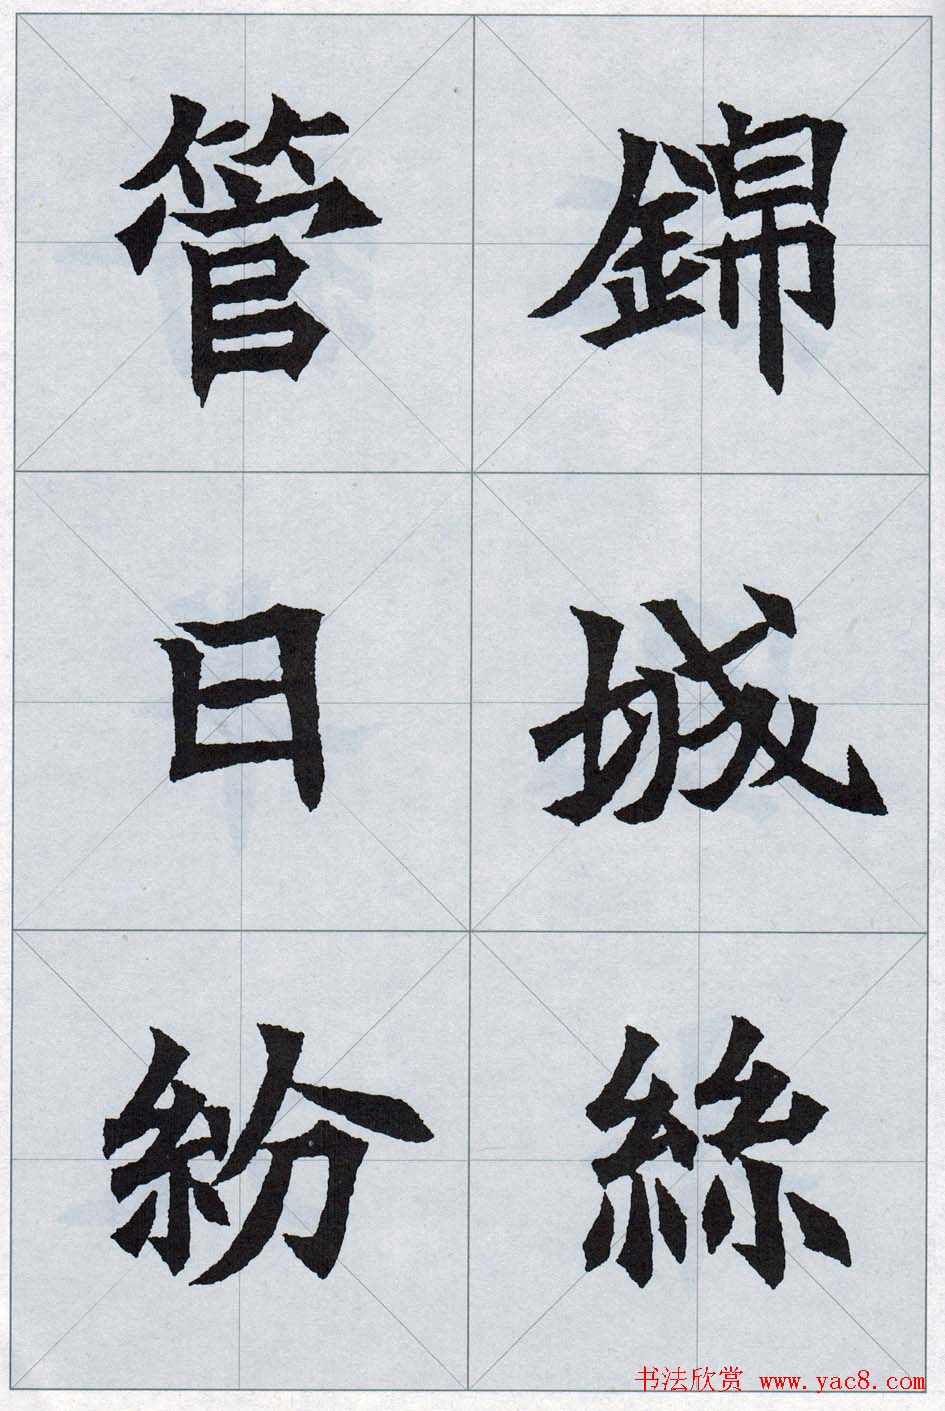 錦城絲
管日紛
书法欣赏 www.yac8.com